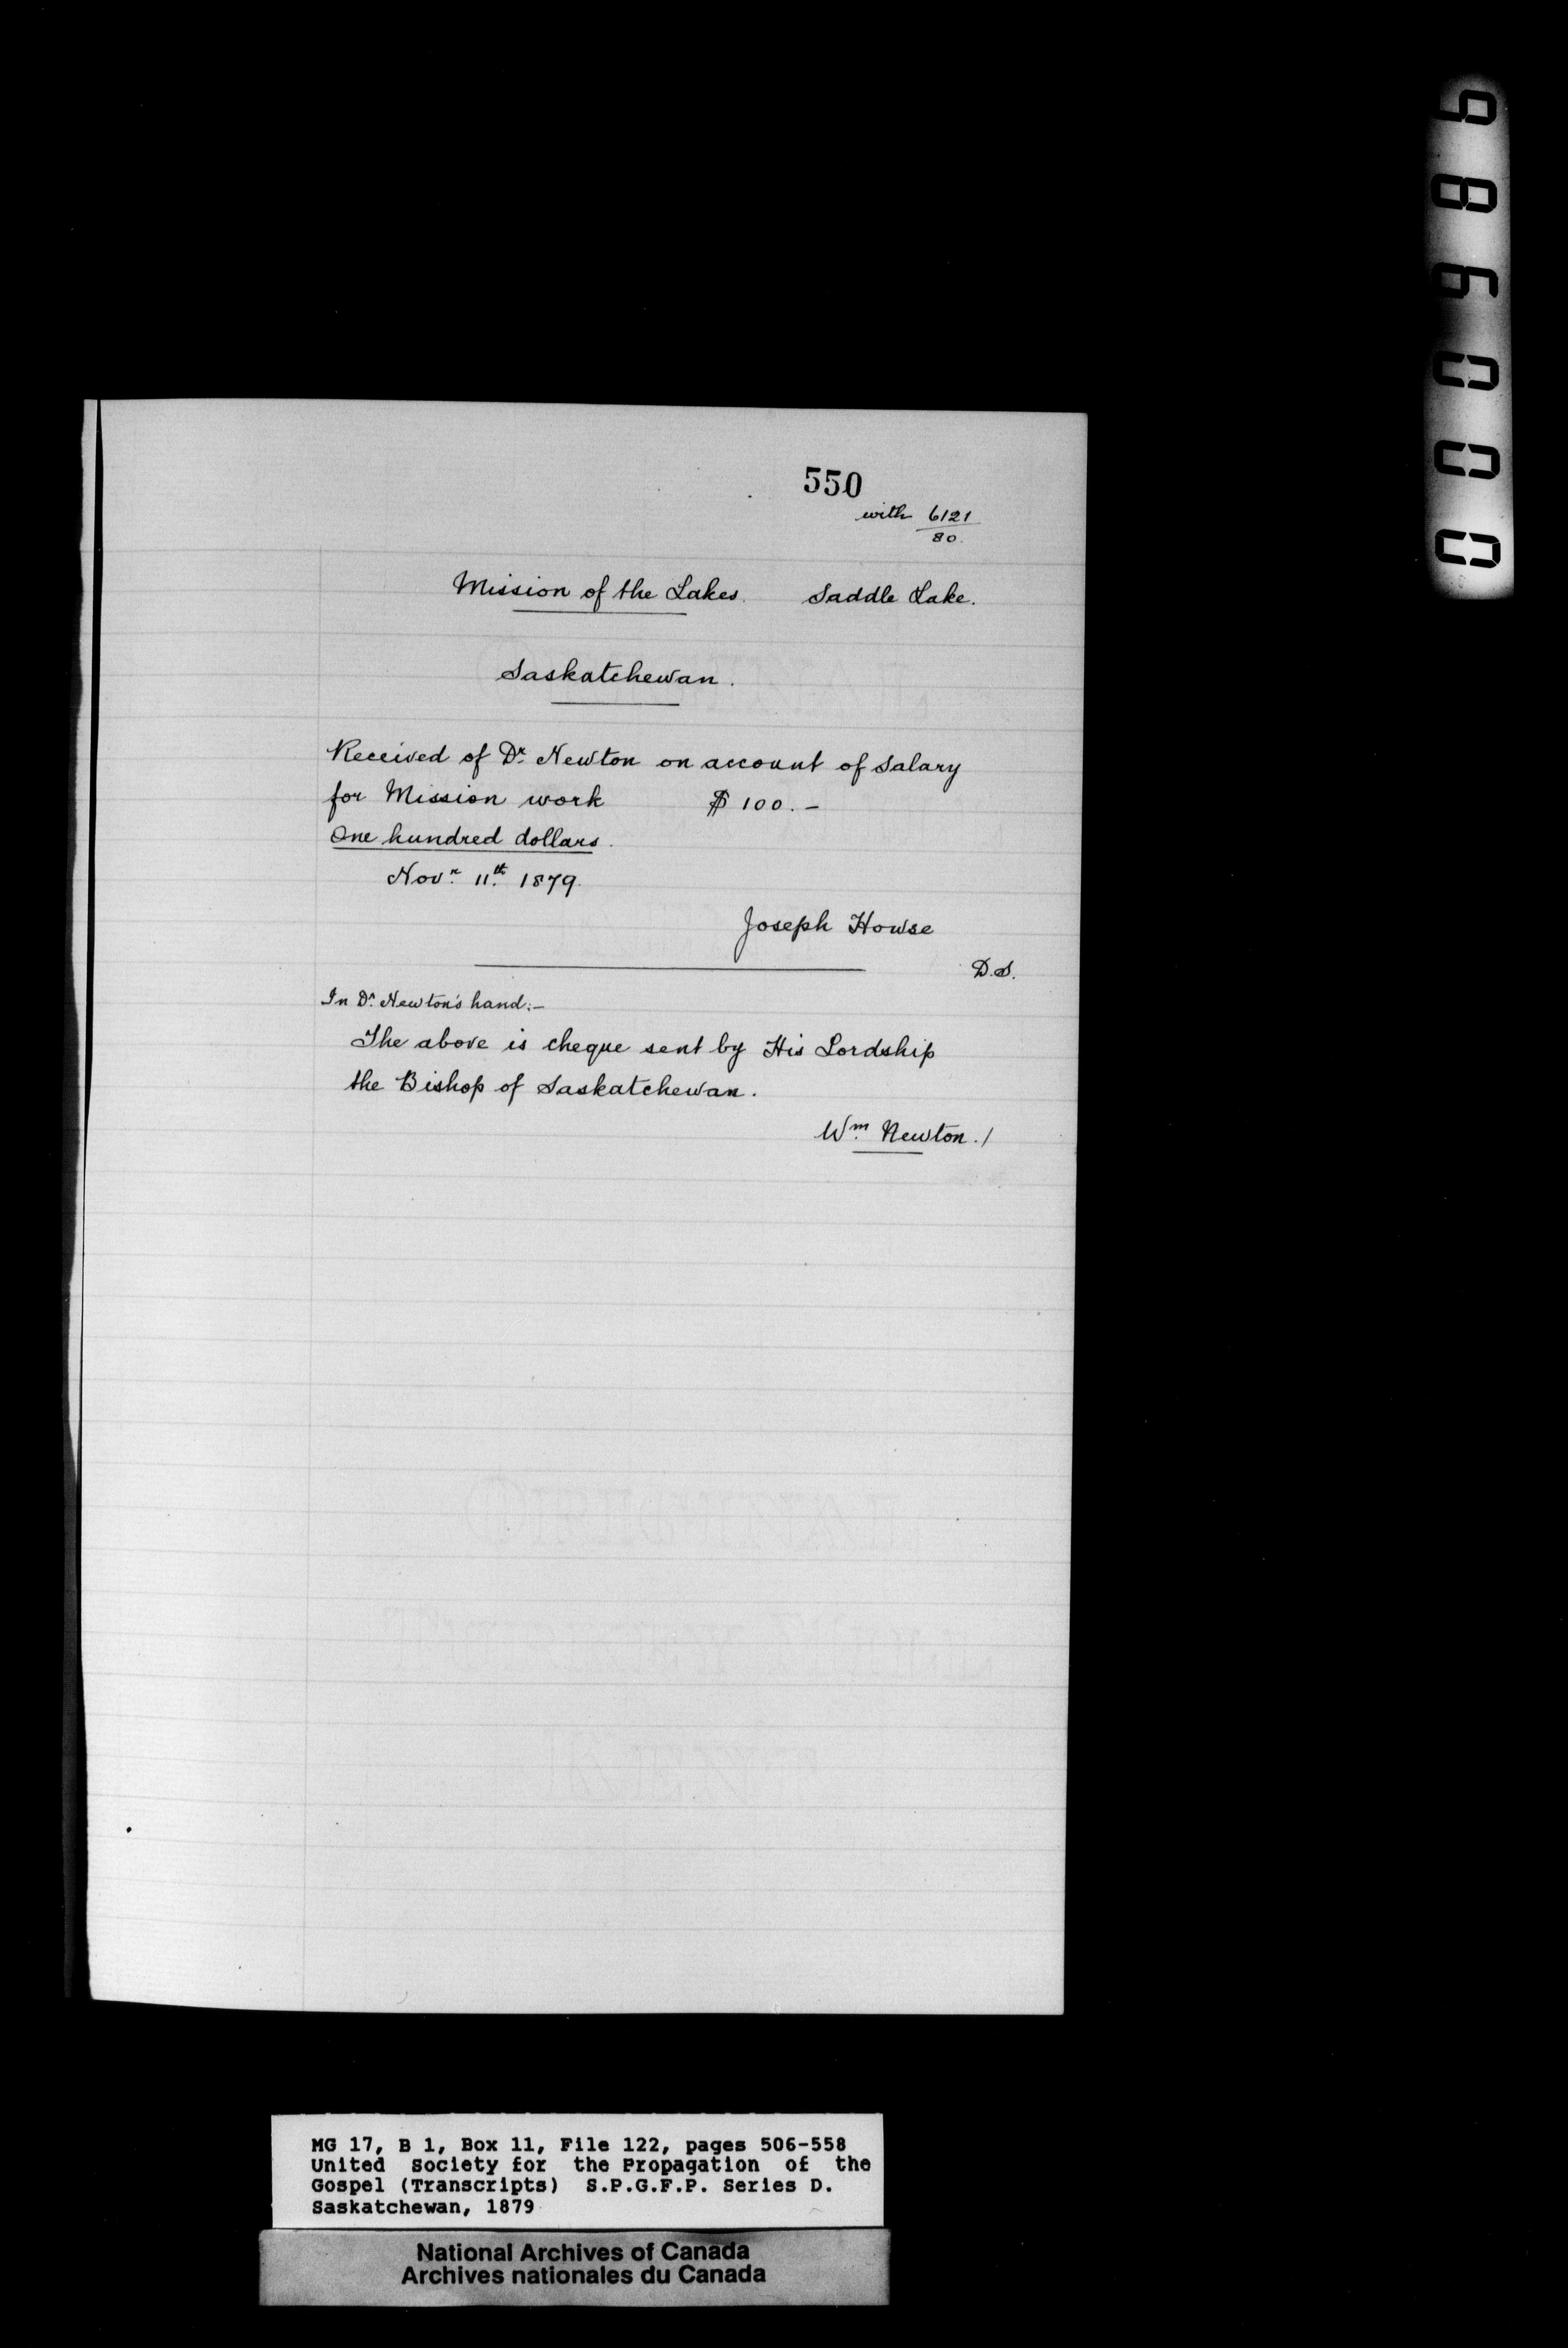 550
with 6121
80.
Mission of the Lakes. Saddle Lake.
Saskatchewan.
Received of Dr. Newton on account of salary
for Mission work $ 100. –
One hundred dollars.
Novr. 11th. 1879.
Joseph Howse
D.S.
In Dr. Newton's hand:–
The above is cheque sent by His Lordship
the Bishop of Saskatchewan.
Wm. Newton./
MG 17, B 1, Box 11, File 122, pages 506-558
United Society for the Propagation of the
Gospel (Transcripts) S.P.G.F.P. Series D.
Saskatchewan, 1879
National Archives of Canada
Archives nationales du Canada